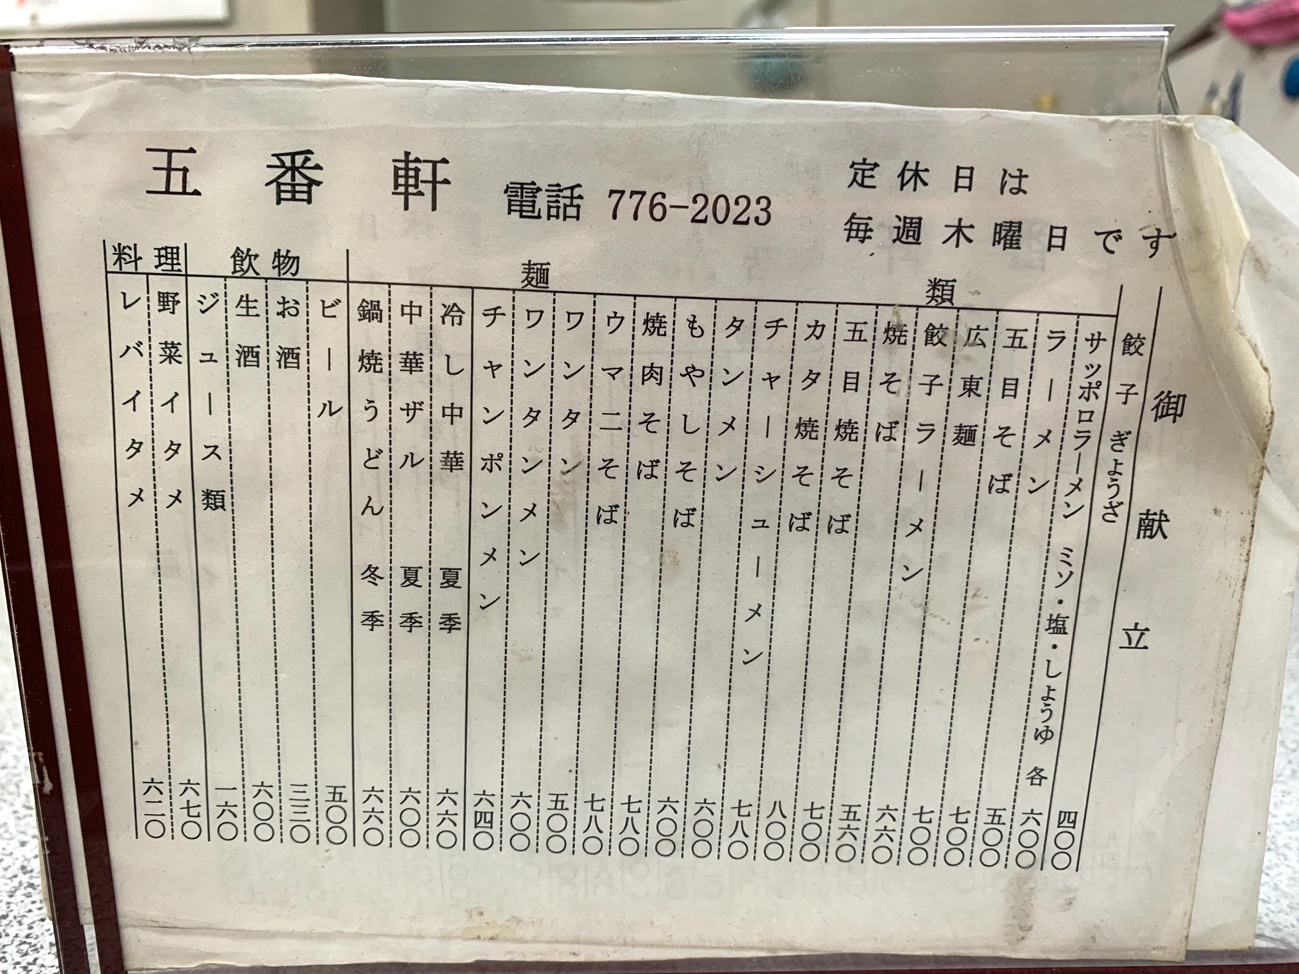 五番軒 電話 776-2023
定休日は
毎週木曜日です
御献立
餃子 ぎょうざ 四〇〇
麺類
サッポロラーメン ミソ・塩・しょうゆ 各 六〇〇
ラーメン 五〇〇
五目そば 七〇〇
広東麺 七〇〇
餃子ラーメン 六六〇
焼そば 五六〇
五目焼そば 七〇〇
カタ焼そば 八〇〇
チャーシューメン 七八〇
タンメン 六〇〇
もやしそば 六〇〇
焼肉そば 七八〇
ウマ二そば 七八〇
ワンタン 五〇〇
ワンタンメン 六〇〇
チャンポンメン 六四〇
冷し中華 夏季 六六〇
中華ザル 夏季 六〇〇
鍋焼うどん 冬季 六六〇
飲物
ビール 五〇〇
お酒 三三〇
生酒 六〇〇
ジュース類 一六〇
料理
野菜イタメ 六七〇
レバイタメ 六二〇